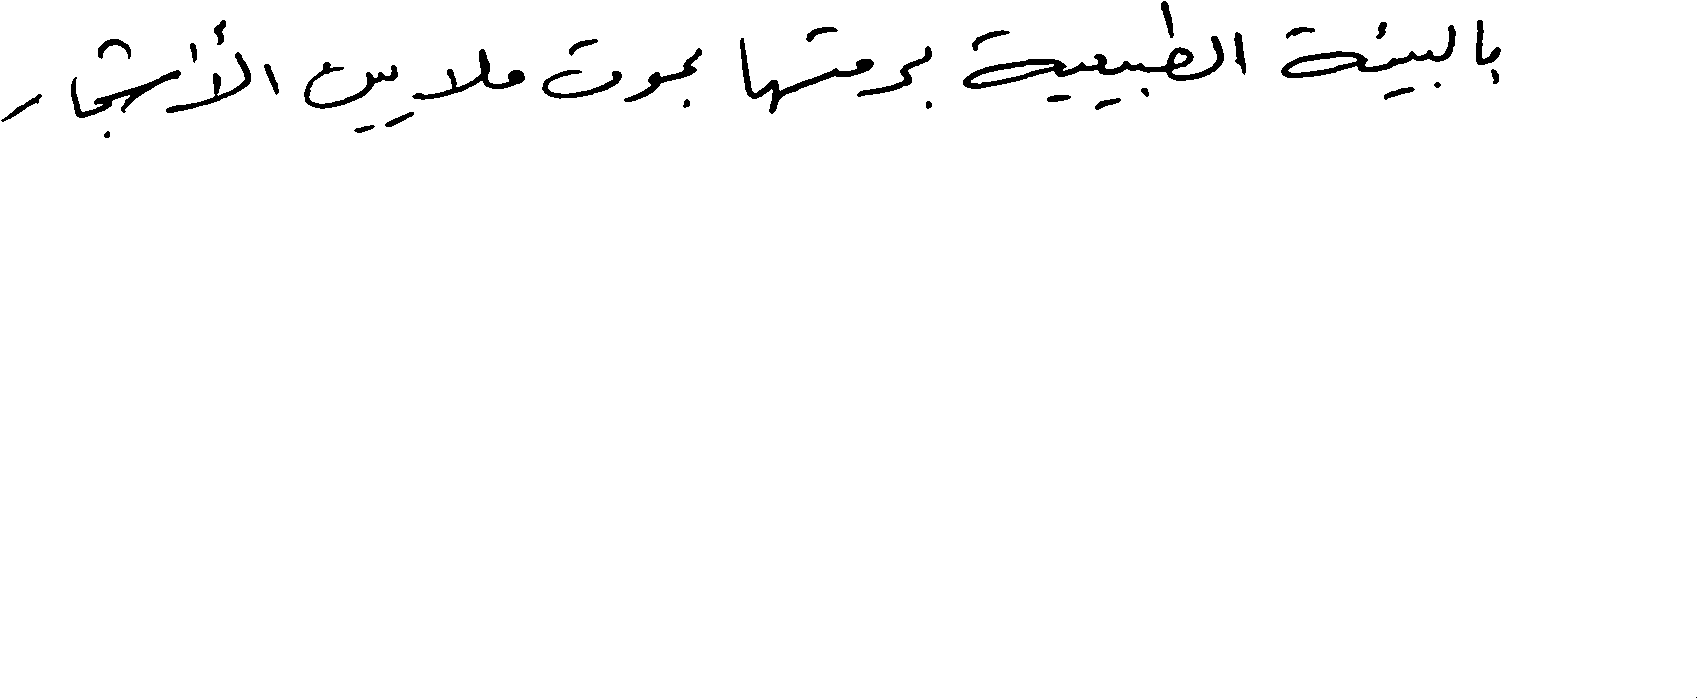 بالبيئة الطبيعية برمتها بموت ملايين الأشجار